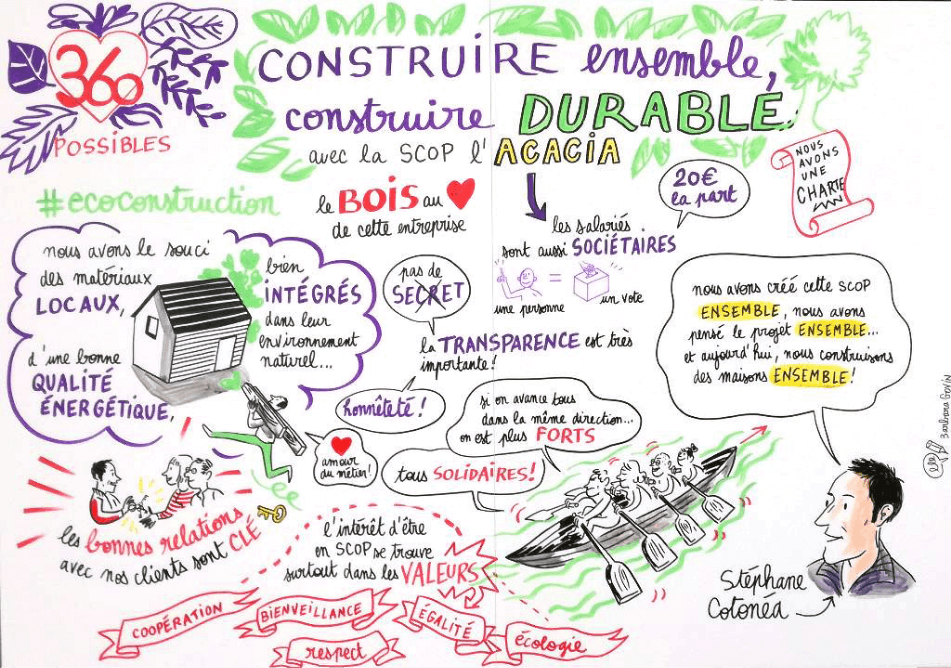 360
POSSIBLES
CONSTRUIRE ensemble,
construire DURABLE
avec la SCOP l'ACACIA
#ecoconstruction
le BOIS au
de cette entreprise
20€
la part
NOUS
AVONS
UNE
CHARTE
les salariés
sont aussi SOCIÉTAIRES
=
une personne
un vote
nous avons le souci
des matériaux
LOCAUX,
d'une bonne
QUALITÉ
ÉNERGÉTIQUE,
bien
INTÉGRÉS
dans leur
environnement
naturel...
pas de
SECRET
la TRANSPARENCE est très
importante!
honnêteté!
amour
du métier!
si on avance tous
dans la même direction...
on est plus FORTS
tous SOLIDAIRES!
nous avons créé cette SCOP
ENSEMBLE, nous avons
pensé le projet ENSEMBLE...
et aujourd'hui, nous construisons
des maisons ENSEMBLE!
Stéphane
Cotonéa
les bonnes relations
avec nos clients sont CLÉ
l'intérêt d'être
en SCOP se trouve
surtout dans les VALEURS
COOPÉRATION
BIENVEILLANCE
respect
ÉGALITÉ
écologie